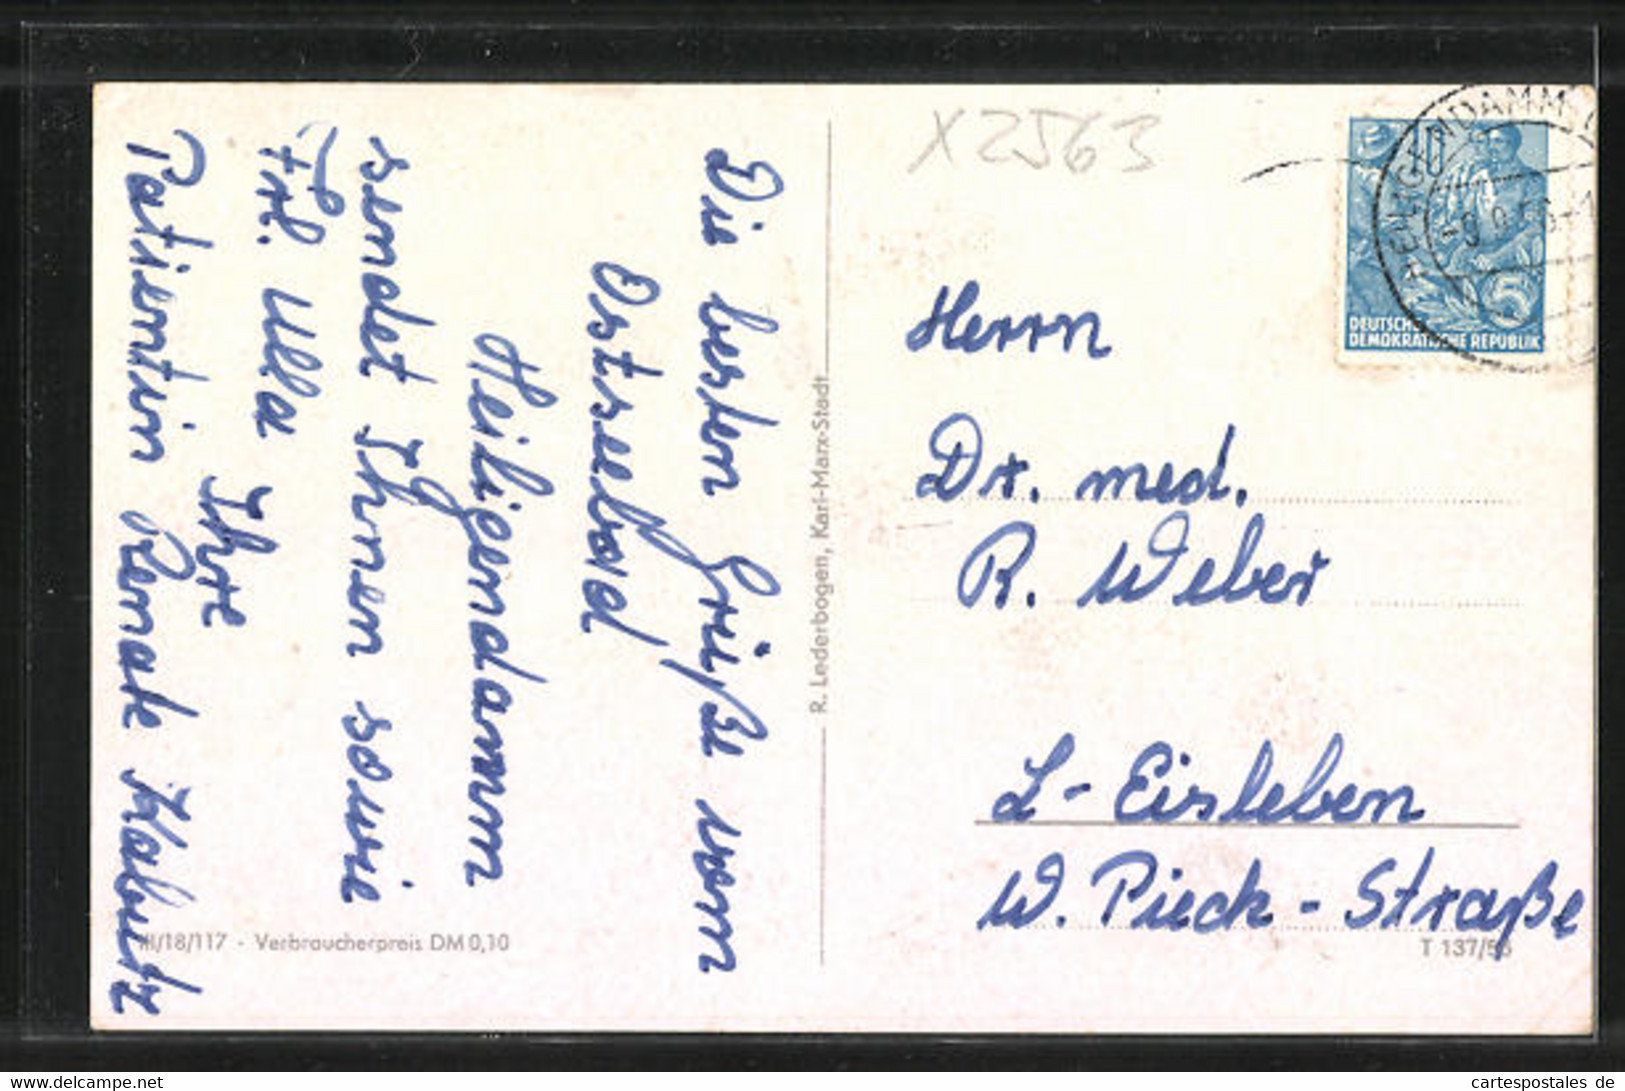 X2563
Die besten Grüße vom
Ostseebad
Heiligendamm
sendet Ihnen sowie
Frl. Ulla
Ihre
Patientin Renate Kabutz
R. Lederbogen, Karl-Marx-Stadt
III/18/117 - Verbraucherpreis DM 0,10
HEILIGENDAMM
-9.9.56-1
5
DEUTSCHE
DEMOKRATISCHE REPUBLIK
Herrn
Dr. med.
R. Weber
L-Eisleben
W. Pieck-Straße
T 137/56
cartespostales de